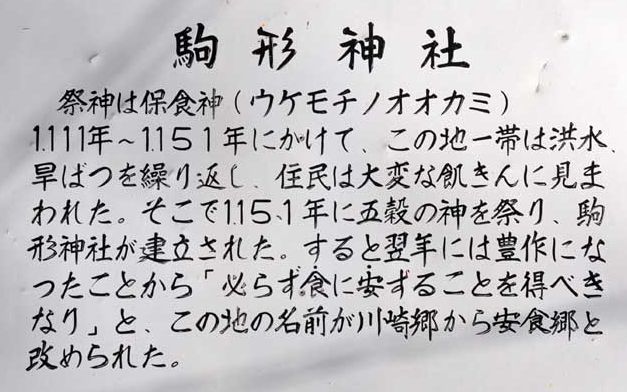 駒形神社
祭神は保食神(ウケモチノオオカミ)
1.111年~1.151年にかけて、この地一帯は洪水、
旱ばつを繰り返し、住民は大変な飢きんに見ま
われた。そこで1.15.1年に五穀の神を祭り、駒
形神社が建立された。すると翌年には豊作にな
ったことから「必らず食に安することを得べき
なり」と、この地の名前が川崎郷から安食郷と
改められた。